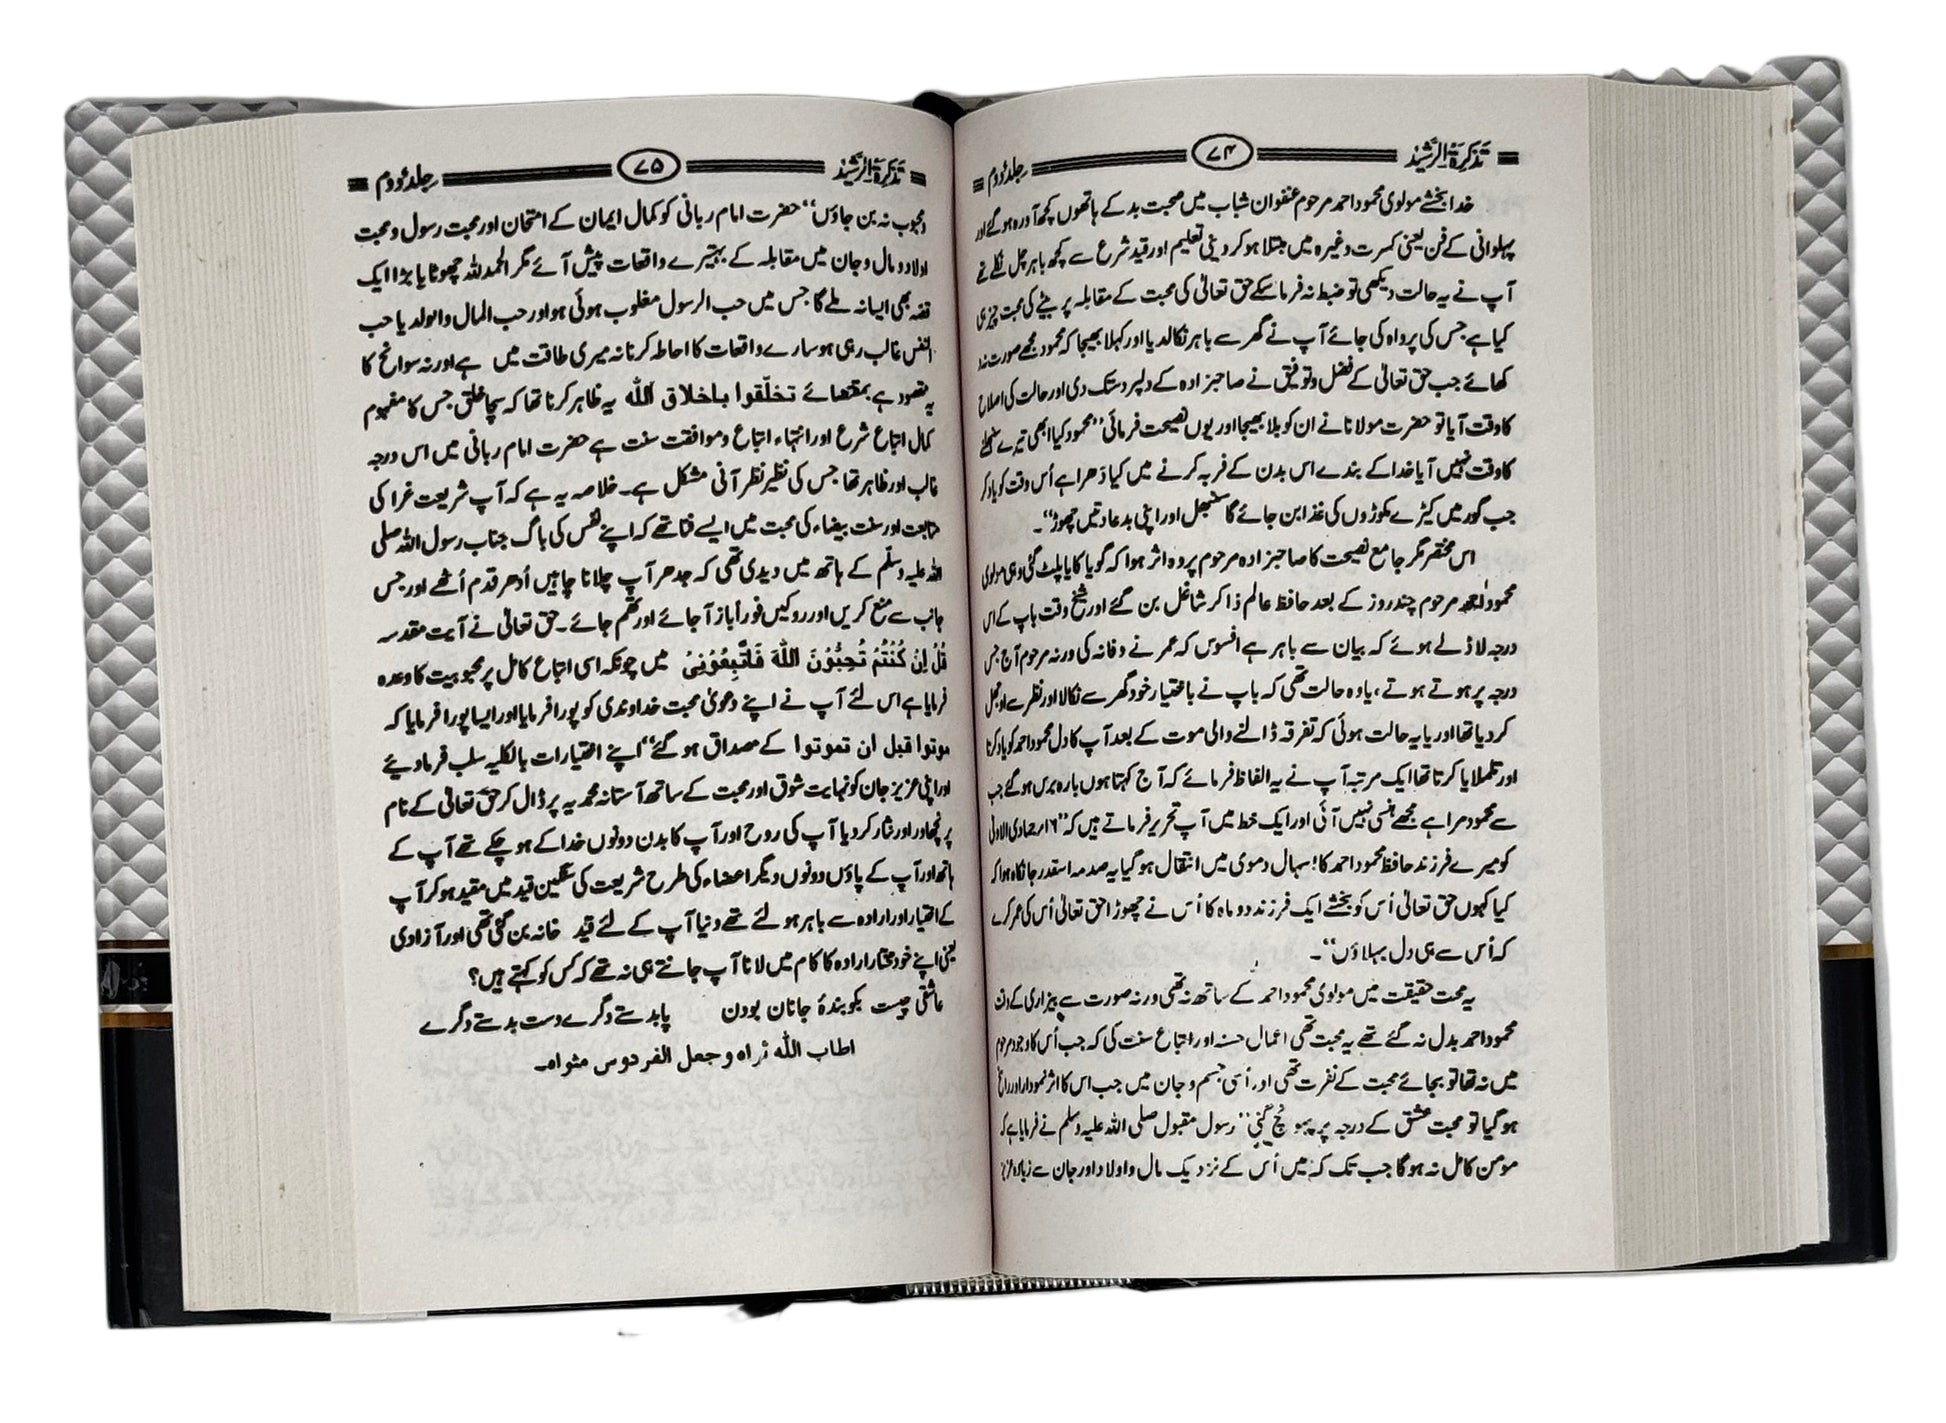 تذکرۃ الرشید ۷۴ جلد دوم
خدا بخشے مولوی محمود احمد مرحوم عنفوان شباب میں صحبت بد کے ہاتھوں کچھ آدرہ ہو گئے اور
پہلوانی کے فن یعنی کسرت وغیرہ میں مبتلا ہو کر دینی تعلیم اور قید شرع سے کچھ باہر چل نکلے تھے
آپ نے یہ حالت دیکھی تو ضبط نہ فرما سکے حق تعالیٰ کی محبت کے مقابلہ پر بیٹے کی محبت چیز ہی
کیا ہے جس کی پرواہ کی جائے آپ نے گھر سے باہر نکالدیا اور کہلا بھیجا کہ محمود مجھے صورت نہ
کھائے جب حق تعالیٰ کے فضل و توفیق نے صاحبزادہ کے دلپر دستک دی اور حالت کی اصلاح
کا وقت آیا تو حضرت مولانا نے ان کو بلا بھیجا اور یوں نصیحت فرمائی ’’محمود کیا ابھی تیرے سنبھلنے
کا وقت نہیں آیا خدا کے بندے اس بدن کے فربہ کرنے میں کیا دَھرا ہے اُس وقت کو یاد کر
جب گور میں کیڑے مکوڑوں کی غذا بن جائے گا سنبھل اور اپنی بد عادتیں چھوڑ‘‘۔
اس مختصر مگر جامع نصیحت کا صاحبزادہ مرحوم پر وہ اثر ہوا کہ گویا کایا پلٹ گئی وہی مولوی
محمود احمد مرحوم چند روز کے بعد حافظ عالم ذاکر شاغل بن گئے اور شیخ وقت باپ کے اس
درجہ لاڈلے ہوئے کہ بیان سے باہر ہے افسوس کہ عمر نے وفا نہ کی ورنہ مرحوم آج جس
درجہ پر ہوتے ہوتے، یا وہ حالت تھی کہ باپ نے با ختیار خود گھر سے نکالا اور نظر سے اوجھل
کر دیا تھا اور یا یہ حالت ہوئی کہ تفرقہ ڈالنے والی موت کے بعد آپ کا دل محمود احمد کو یاد کرتا
اور تلملایا کرتا تھا ایک مرتبہ آپ نے یہ الفاظ فرمائے کہ آج کہتا ہوں بارہ برس ہو گئے جب
سے محمود مرا ہے مجھے ہنسی نہیں آئی اور ایک خط میں آپ تحریر فرماتے ہیں کہ ’’۱۶؍ جمادی الاولیٰ
کو میرے فرزند حافظ محمود احمد کا اسہال دموی میں انتقال ہو گیا یہ صدمہ اسقدر جانکاہ ہوا کہ
کیا کہوں حق تعالیٰ اُس کو بخشے ایک فرزند دو ماہ کا اُس نے چھوڑا حق تعالیٰ اُس کی عمر کرے
کہ اُس سے ہی دل بہلاؤں‘‘۔
یہ محبت حقیقت میں مولوی محمود احمد کے ساتھ نہ تھی ورنہ صورت سے بیزاری کے دن
محمود احمد بدل نہ گئے تھے یہ محبت تھی اعمال حسنہ اور اتباع سنت کی کہ جب اُس کا وجود مرحوم
میں نہ تھا تو بجائے محبت کے نفرت تھی اور اُسی جسم و جان میں جب اس کا اثر نمودار اور راسخ
ہو گیا تو محبت عشق کے درجہ پر پہونچ گئی ’’رسول مقبول صلی اللہ علیہ وسلم نے فرمایا ہے کہ
مومن کامل نہ ہوگا جب تک کہ میں اُس کے نزدیک مال و اولاد اور جان سے زیادہ عزیز
تذکرۃ الرشید ۷۵ جلد دوم
و محبوب نہ بن جاؤں‘‘ حضرت امام ربانی کو کمال ایمان کے امتحان اور محبت رسول و محبت
اولاد و مال و جان میں مقابلہ کے بہتیرے واقعات پیش آئے مگر الحمدللہ چھوٹا یا بڑا ایک
قصہ بھی ایسا نہ ملے گا جس میں حب الرسول مغلوب ہوئی ہو اور حب المال والولد یا حب
النفس غالب رہی ہو سارے واقعات کا احاطہ کرنا نہ میری طاقت میں ہے اور نہ سوانح کا
یہ مقصود ہے بمقتضائے تخلّقوا باخلاق اللہ یہ ظاہر کرنا تھا کہ سچا خلق جس کا مفہوم
کمال اتباع شرع اور انتہاء اتباع و موافقت سنت ہے حضرت امام ربانی میں اس درجہ
غالب اور ظاہر تھا جس کی نظیر نظر آنی مشکل ہے۔ خلاصہ یہ ہے کہ آپ شریعت غرا کی
متابعت اور سنت بیضاء کی محبت میں ایسے فنا تھے کہ اپنے نفس کی باگ جناب رسول اللہ صلی
اللہ علیہ وسلّم کے ہاتھ میں دیدی تھی کہ جدھر آپ چلانا چاہیں اُدھر قدم اُٹھے اور جس
جانب سے منع کریں اور روکیں فوراً باز آ جائے اور تھم جائے۔ حق تعالیٰ نے آیت مقدسہ
قُلْ اِنْ كُنْتُمْ تُحِبُّوْنَ اللّٰهَ فَاتَّبِعُوْنِیْ میں چونکہ اسی اتباع کامل پر محبوبیت کا وعدہ
فرمایا ہے اس لئے آپ نے اپنے دعویٰ محبت خداوندی کو پورا فرمایا اور ایسا پورا فرمایا کہ
موتوا قبل ان تموتوا کے مصداق ہو گئے‘‘ اپنے اختیارات بالکلیہ سلب فرما دیئے
اور اپنی عزیز جان کو نہایت شوق اور محبت کے ساتھ آستانہ محمدیہ پر ڈال کر حق تعالیٰ کے نام
پر نچھاور اور نثار کر دیا آپ کی روح اور آپ کا بدن دونوں خدا کے ہو چکے تھے آپ کے
ہاتھ اور آپ کے پاؤں دونوں دیگر اعضاء کی طرح شریعت کی سنگین قید میں مقید ہو کر آپ
کے اختیار اور ارادہ سے باہر ہو لئے تھے دنیا آپ کے لئے قید خانہ بن گئی تھی اور آزادی
یعنی اپنے خود مختار ارادہ کا کام میں لانا آپ جانتے ہی نہ تھے کہ کس کو کہتے ہیں؟
عاشقی چیست بگو بندۂ جاناں بودن پا بدستے دگرے دست بدستے دگرے
اطاب اللہ ثراہ وجعل الفردوس مثواہ۔